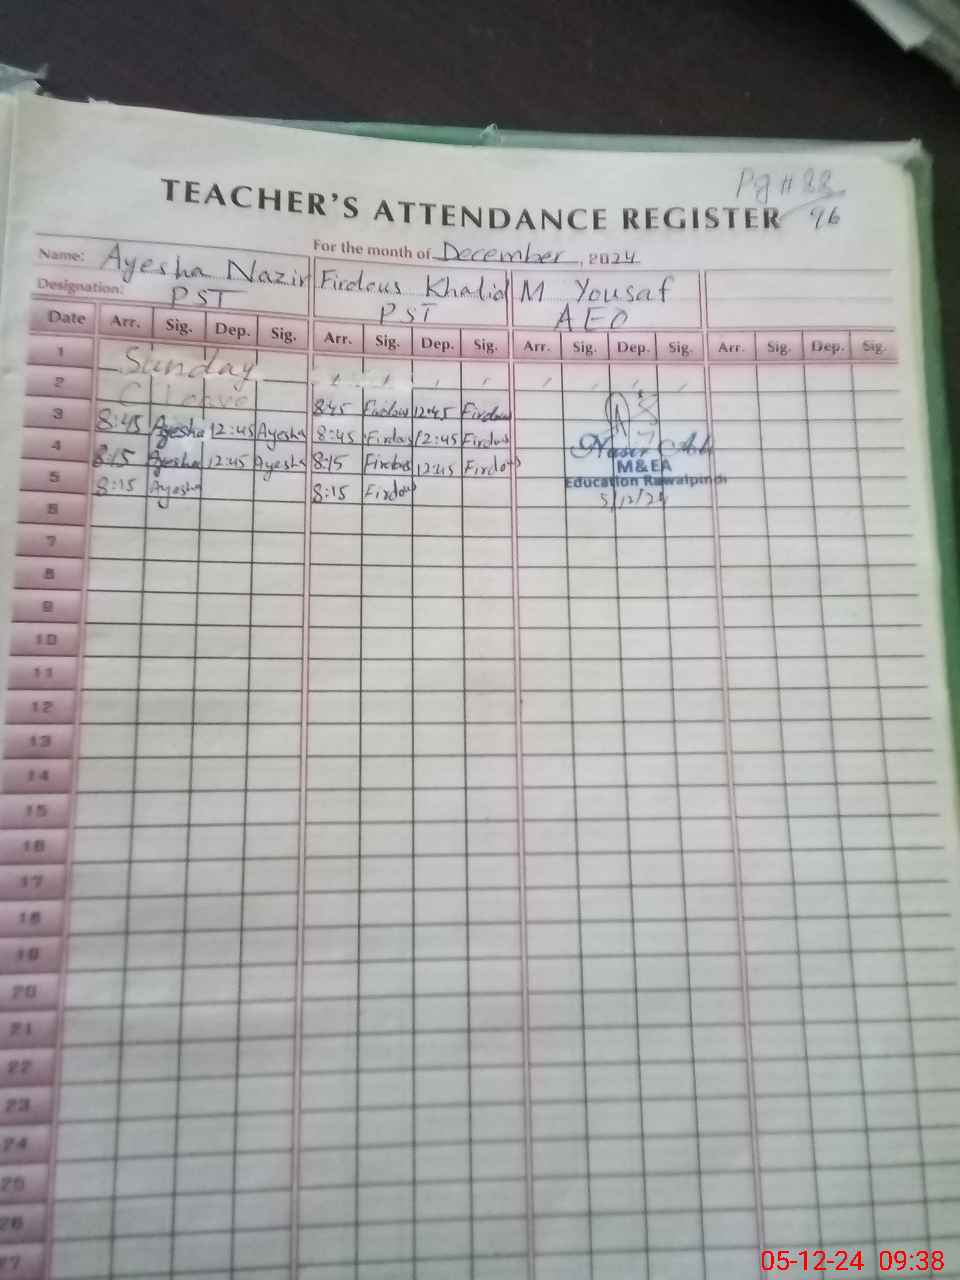 Pg # 88
96
TEACHER'S ATTENDANCE REGISTER
For the month of December, 2024
Name: Ayesha Nazir Firdous Khalid M Yousaf
Designation: PST PST AEO
Date Arr. Sig. Dep. Sig. Arr. Sig. Dep. Sig. Arr. Sig. Dep. Sig. Arr. Sig. Dep. Sig.
1 Sunday
2 C leave 8:45 Firdous 12:45 Firdous
3 8:45 Ayesha 12:45 Ayesha 8:45 Firdous 12:45 Firdous
4 8:15 Ayesha 12:45 Ayesha 8:15 Firdous 12:45 Firdous
M&EA
5 8:15 Ayesha 8:15 Firdous
Education Rawalpindi
5/12/24
6
7
8
9
10
11
12
13
14
15
16
17
18
19
20
21
22
23
24
25
26
27
05-12-24 09:38